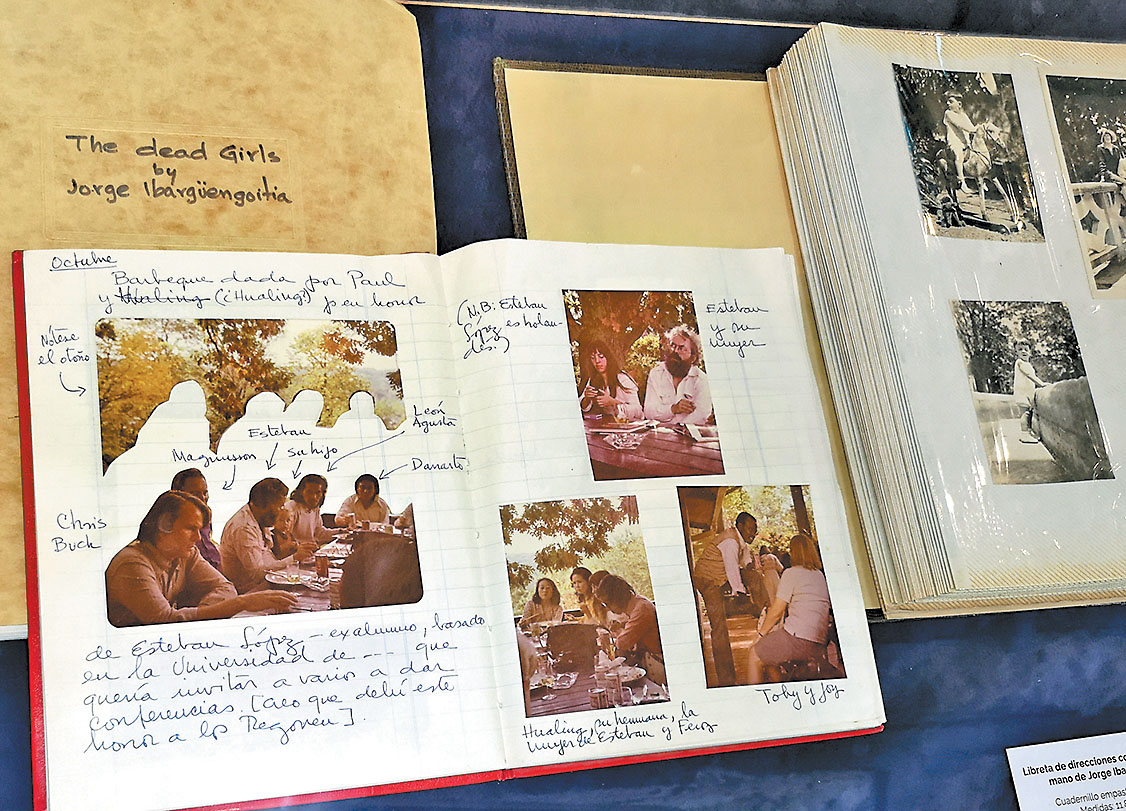 The dead Girls
by
Jorge Ibargüengoitia
Octubre
Barbeque dada por Paul
y Hualing (¿Hualing?) en honor
Nótese
el otoño
Esteban
su hijo
León
Agusta
Magnusson
Danarto
Chris
Buch
de Esteban López – exalumno, basado
en la Universidad de --- que
quería invitar a varios a dar
conferencias. [Creo que debí este
honor a los Regoyen].
(N.B: Esteban
López es holan-
dés.)
Esteban
y su
mujer
Hualing, su hermana, la
mujer de Esteban y Feroz
Toby y Joy
Libreta de direcciones co
mano de Jorge Iba
Cuadernillo empas
Medidas: 11.